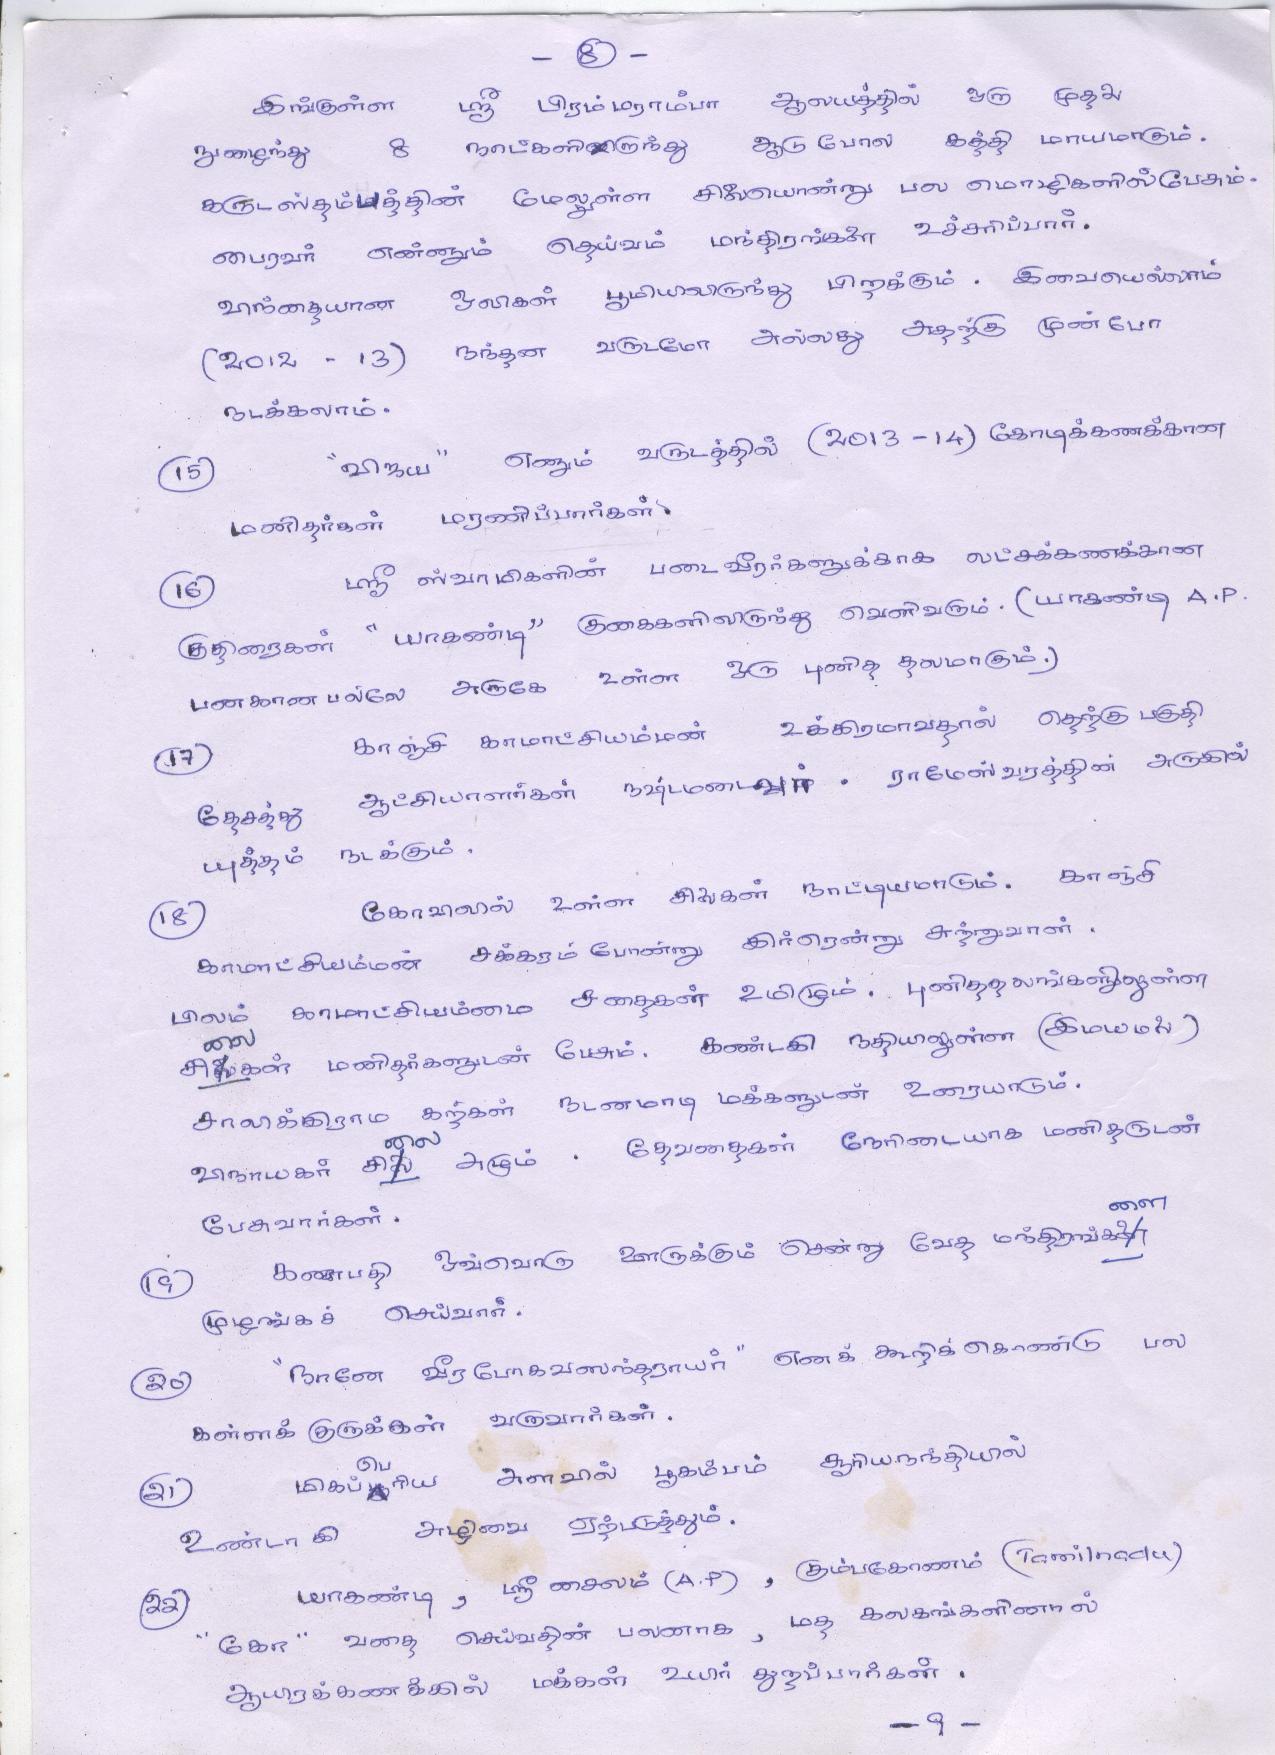 - 8 -
இங்குள்ள ஸ்ரீ பிரம்மராம்பா ஆலயத்தில் ஒரு முதலை
நுழைந்து 8 நாட்களிலிருந்து ஆடு போல கத்தி மாயமாகும்.
கருடஸ்தம்பத்தின் மேலுள்ள சிலையொன்று பல மொழிகளில் பேசும்.
பைரவர் என்னும் தெய்வம் மந்திரங்களை உச்சரிப்பார்.
விந்தையான ஒலிகள் பூமியிலிருந்து பிறக்கும். இவையெல்லாம்
(2012 - 13) நந்தன வருடமோ அல்லது அதற்கு முன்போ
நடக்கலாம்.
(15) "விஜய" எனும் வருடத்தில் (2013 - 14) கோடிக்கணக்கான
மனிதர்கள் மரணிப்பார்கள்.
(16) ஸ்ரீ ஸ்வாமிகளின் படைவீரர்களுக்காக லட்சக்கணக்கான
குதிரைகள் "யாகண்டி" குகைகளிலிருந்து வெளிவரும். (யாகண்டி A.P.
பணகானபல்லே அருகே உள்ள ஒரு புனித தலமாகும்.)
(17) காஞ்சி காமாட்சியம்மன் உக்கிரமாவதால் தெற்கு பகுதி
தேசத்து ஆட்சியாளர்கள் நஷ்டமடைவர். ராமேஸ்வரத்தின் அருகில்
யுத்தம் நடக்கும்.
(18) கோவிலில் உள்ள சிலைகள் நாட்டியமாடும். காஞ்சி
காமாட்சியம்மன் சக்கரம்போன்று கிர்ரென்று சுற்றுவாள்.
பிலம் காமாட்சியம்மை சதைகள் உமிழும். புனிததலங்களிலுள்ள
சிலைகள் மனிதர்களுடன் பேசும். கண்டகி நதியிலுள்ள (இமயமலை)
சாலிக்கிராம கற்கள் நடனமாடி மக்களுடன் உரையாடும்.
விநாயகர் சிலை அழும். தேவதைகள் நேரிடையாக மனிதருடன்
பேசுவார்கள்.
(19) கணபதி ஒவ்வொரு ஊருக்கும் சென்று வேத மந்திரங்களை
முழங்கச் செய்வார்.
(20) "நானே வீரபோகவஸந்தராயர்" எனக் கூறிக்கொண்டு பல
கள்ளக் குருக்கள் வருவார்கள்.
(21) மிகப்பெரிய அளவில் பூகம்பம் ஆரியநந்தியில்
உண்டாகி அழிவை ஏற்படுத்தும்.
(22) யாகண்டி, ஸ்ரீசைலம் (A.P), கும்பகோணம் (Tamilnadu)
"கோ" வதை செய்வதின் பலனாக, மத கலகங்களினால்
ஆயிரக்கணக்கில் மக்கள் உயிர் துறப்பார்கள்.
- 9 -